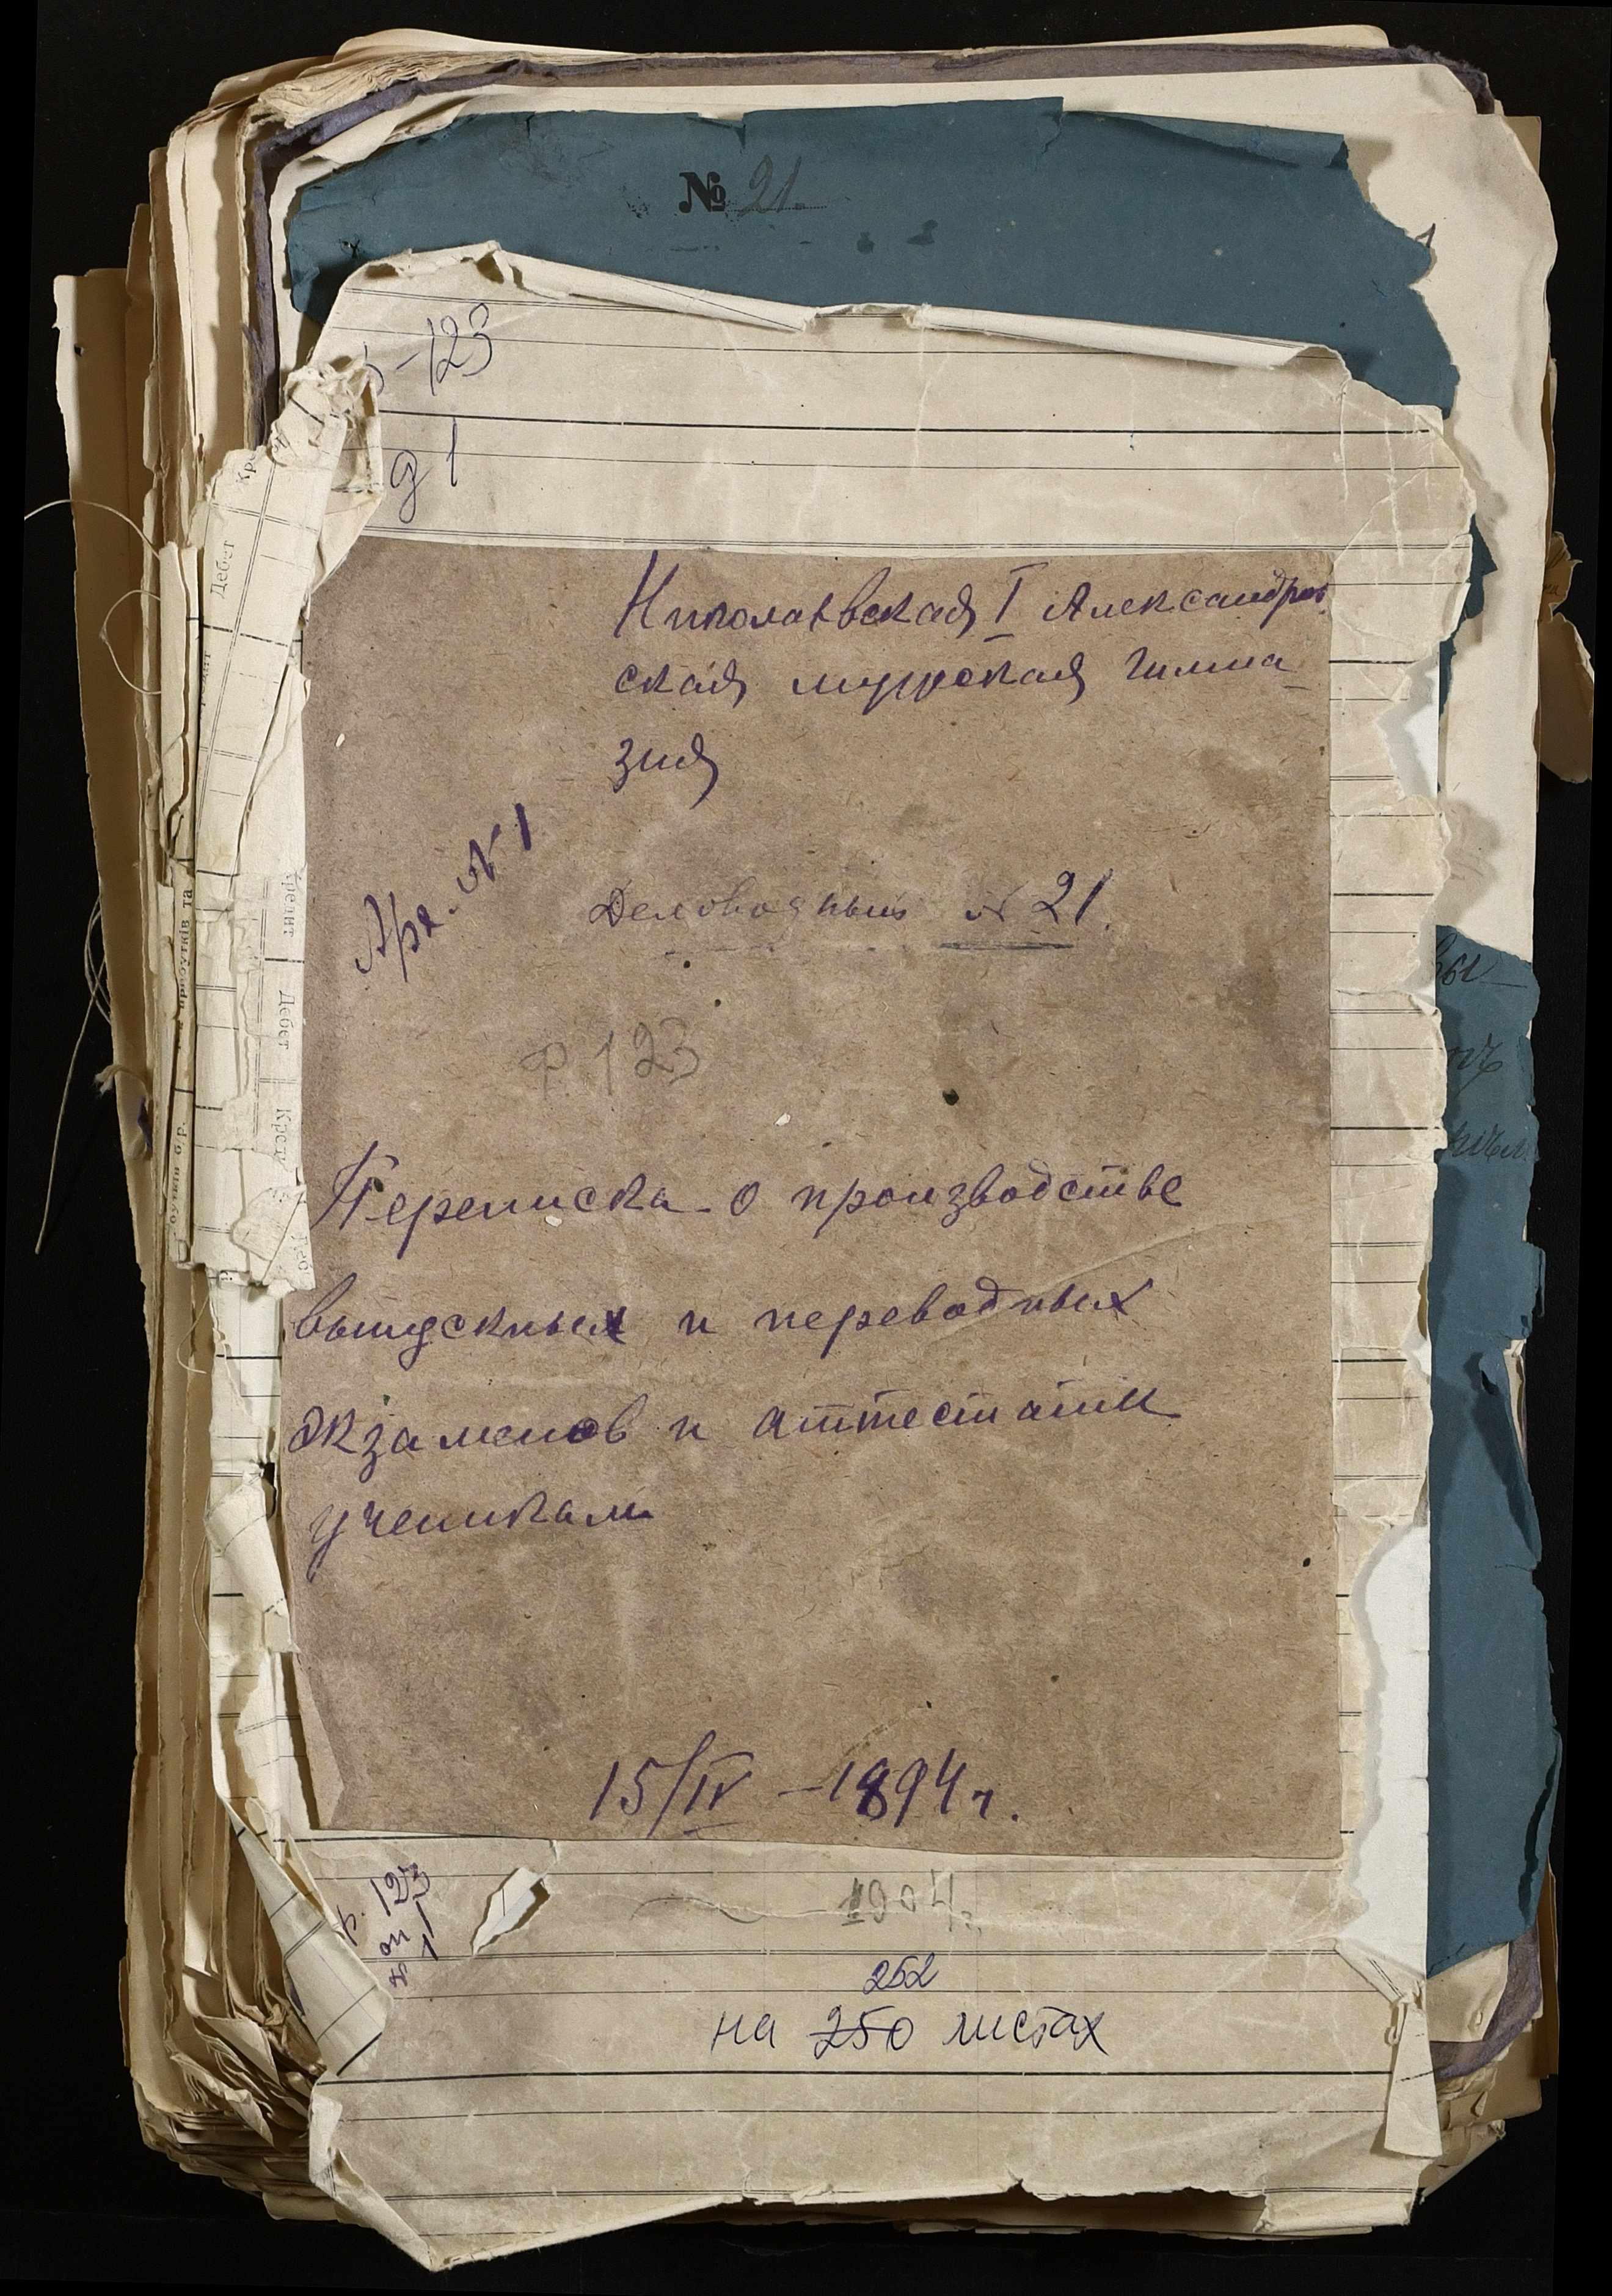 № 21.
-123
д 1
Николаевская I Александров
ская мужская гимна-
зия
Арх. № 1
Деловодный № 21.
ф. 123
Переписка о производстве
выпускных и переводных
экзаменов и аттестати
ученикам
15/IV – 1894 г.
1904 г.
ф. 123
оп 1
№ 1
252
на 250 листах
Дебет
Кредит
Дебет
прибутків та